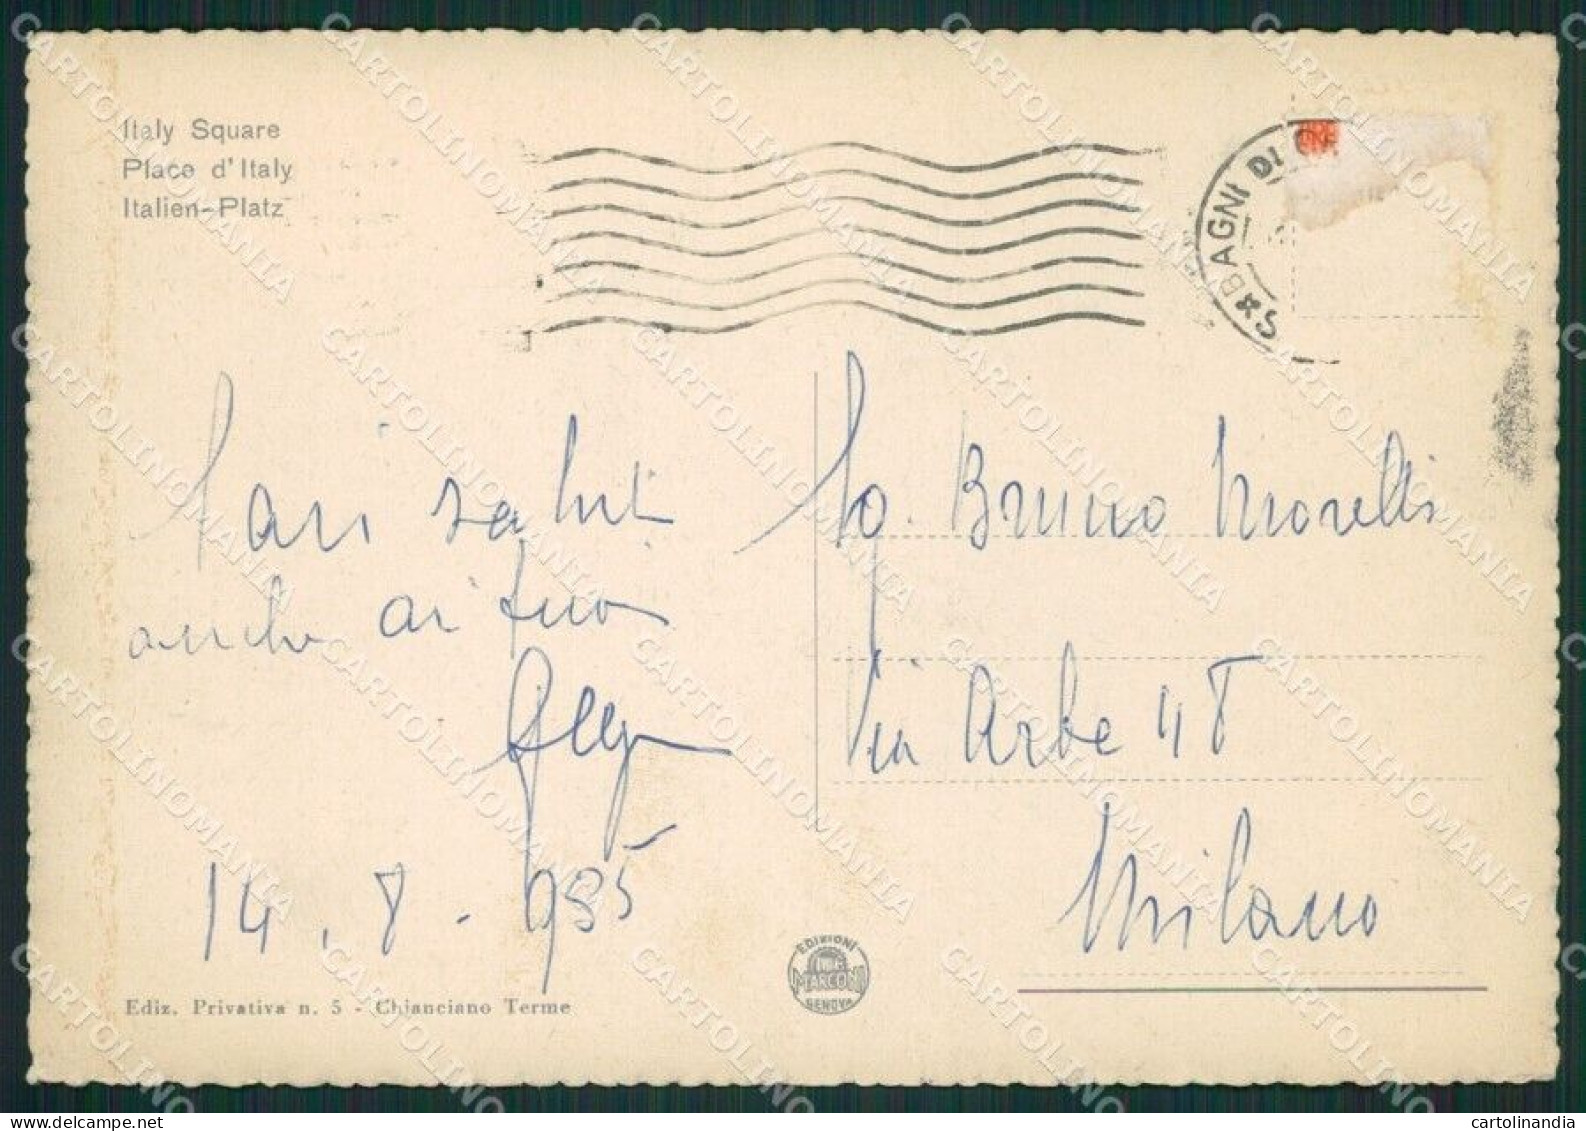 Italy Square
Place d'Italy
Italien-Platz
S * BAGNI DI
Cari saluti
anche ai tuoi
14. 8 - 955
Sig. Bruno Morelli
Via Arbe 48
Milano
EDIZIONI
MARCONI
GENOVA
Ediz. Privativa n. 5 - Chianciano Terme
CARTOLINOMANIA
cartolinandia